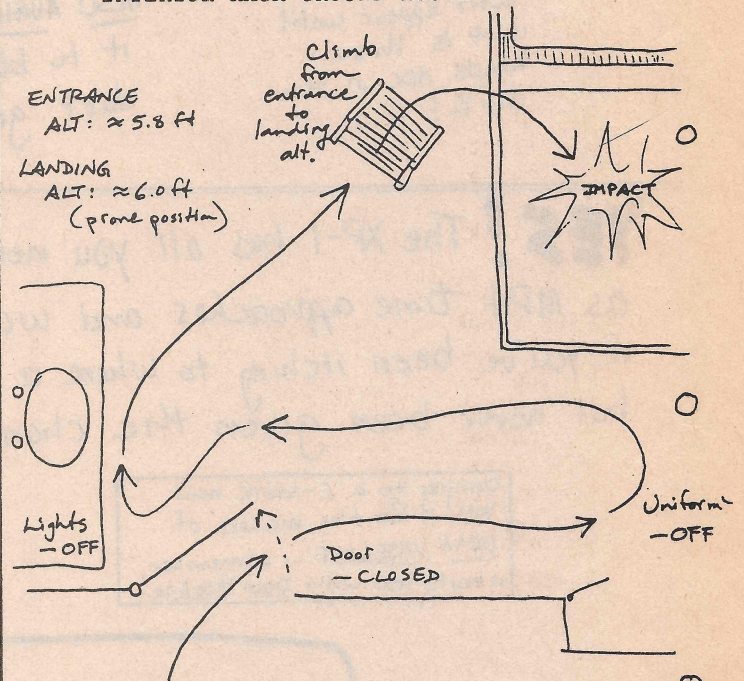 Climb
from
entrance
to
landing
alt.
ENTRANCE
ALT: ≈ 5.8 ft
LANDING
ALT: ≈ 6.0 ft
(prone position)
IMPACT
Lights
— OFF
Door
— CLOSED
Uniform
— OFF